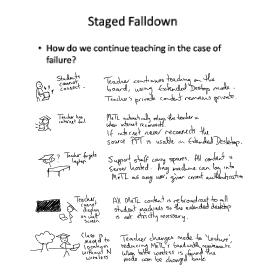 Staged Falldown
• How do we continue teaching in the case of
failure?
Students
cannot
connect.
Teacher continues teaching on the
board, using Extended Desktop mode.
Teacher's private content remains private.
Teacher has
internet fail
MeTL automatically relogs the teacher in
when internet reconnects.
If internet never reconnects the
source PPT is usable in Extended Desktop.
? Teacher forgets
laptop
Support staff carry spares. All content is
server hosted. Any machine can log into
MeTL as any user, given correct authentication
Teacher
cannot
display
on
screen
All MeTL content is retransmitted to all
student machines so the extended desktop
is not strictly necessary.
Class
needed to
location
without
wireless
Teacher changes mode to 'Lecture',
reducing MeTL's bandwidth
When
mode can be changed back